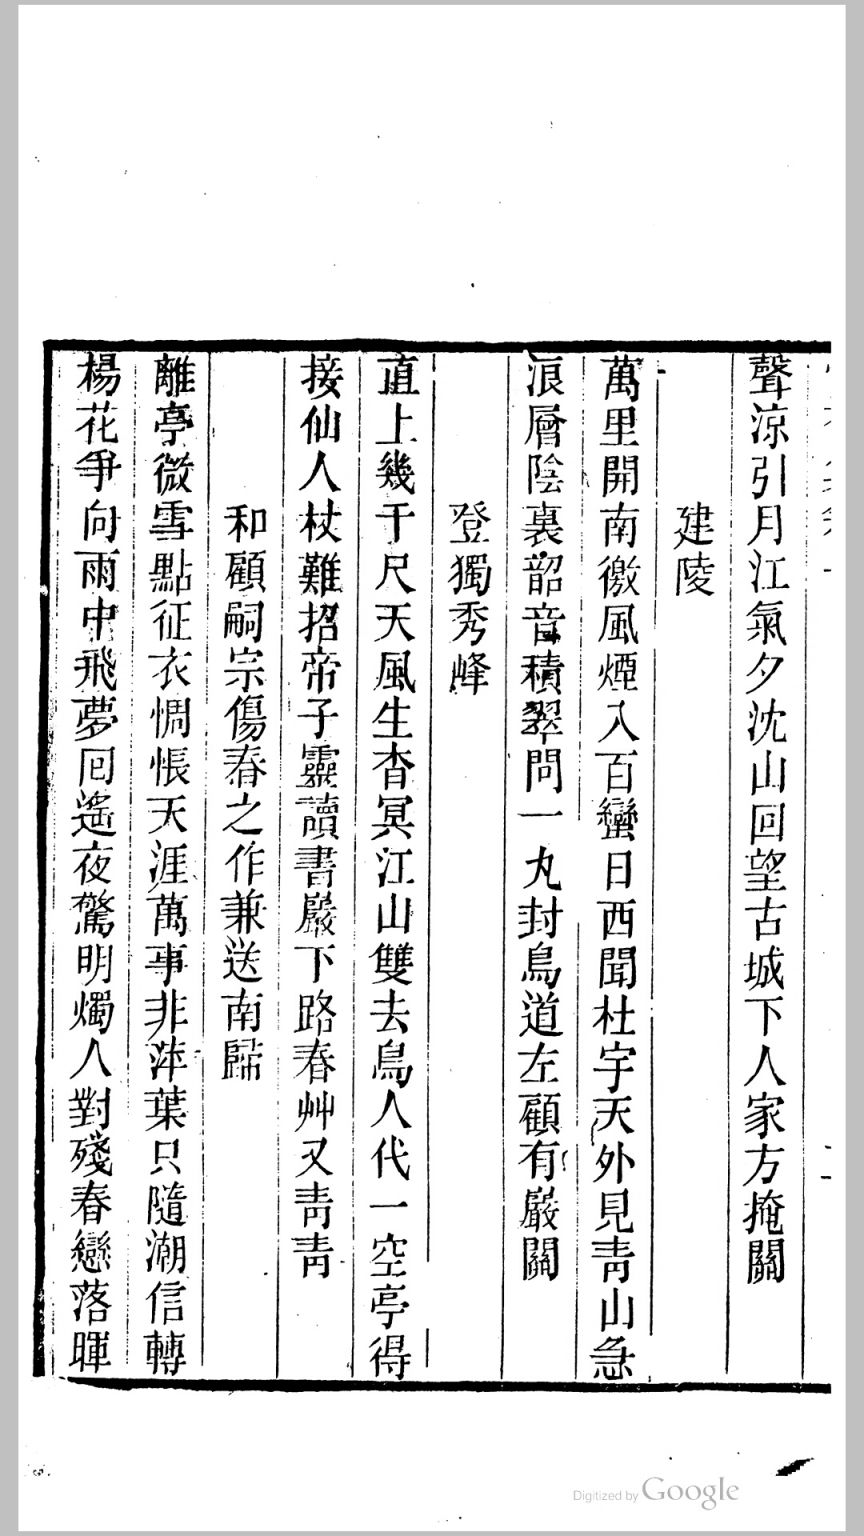 聲涼引月江氣夕沈山回望古城下人家方掩關
建陵
萬里開南徼風煙入百蠻日西聞杜宇天外見青山急
浪層陰裏韶音積翠問一丸封鳥道左顧有嚴關
登獨秀峰
直上幾千尺天風生杳冥江山雙去鳥人代一空亭得
接仙人杖難招帝子靈讀書巖下路春艸又青青
和顧嗣宗傷春之作兼送南歸
離亭微雪點征衣惆悵天涯萬事非萍葉只隨潮信轉
楊花爭向雨中飛夢回遙夜驚明燭人對殘春戀落暉
Digitized by Google